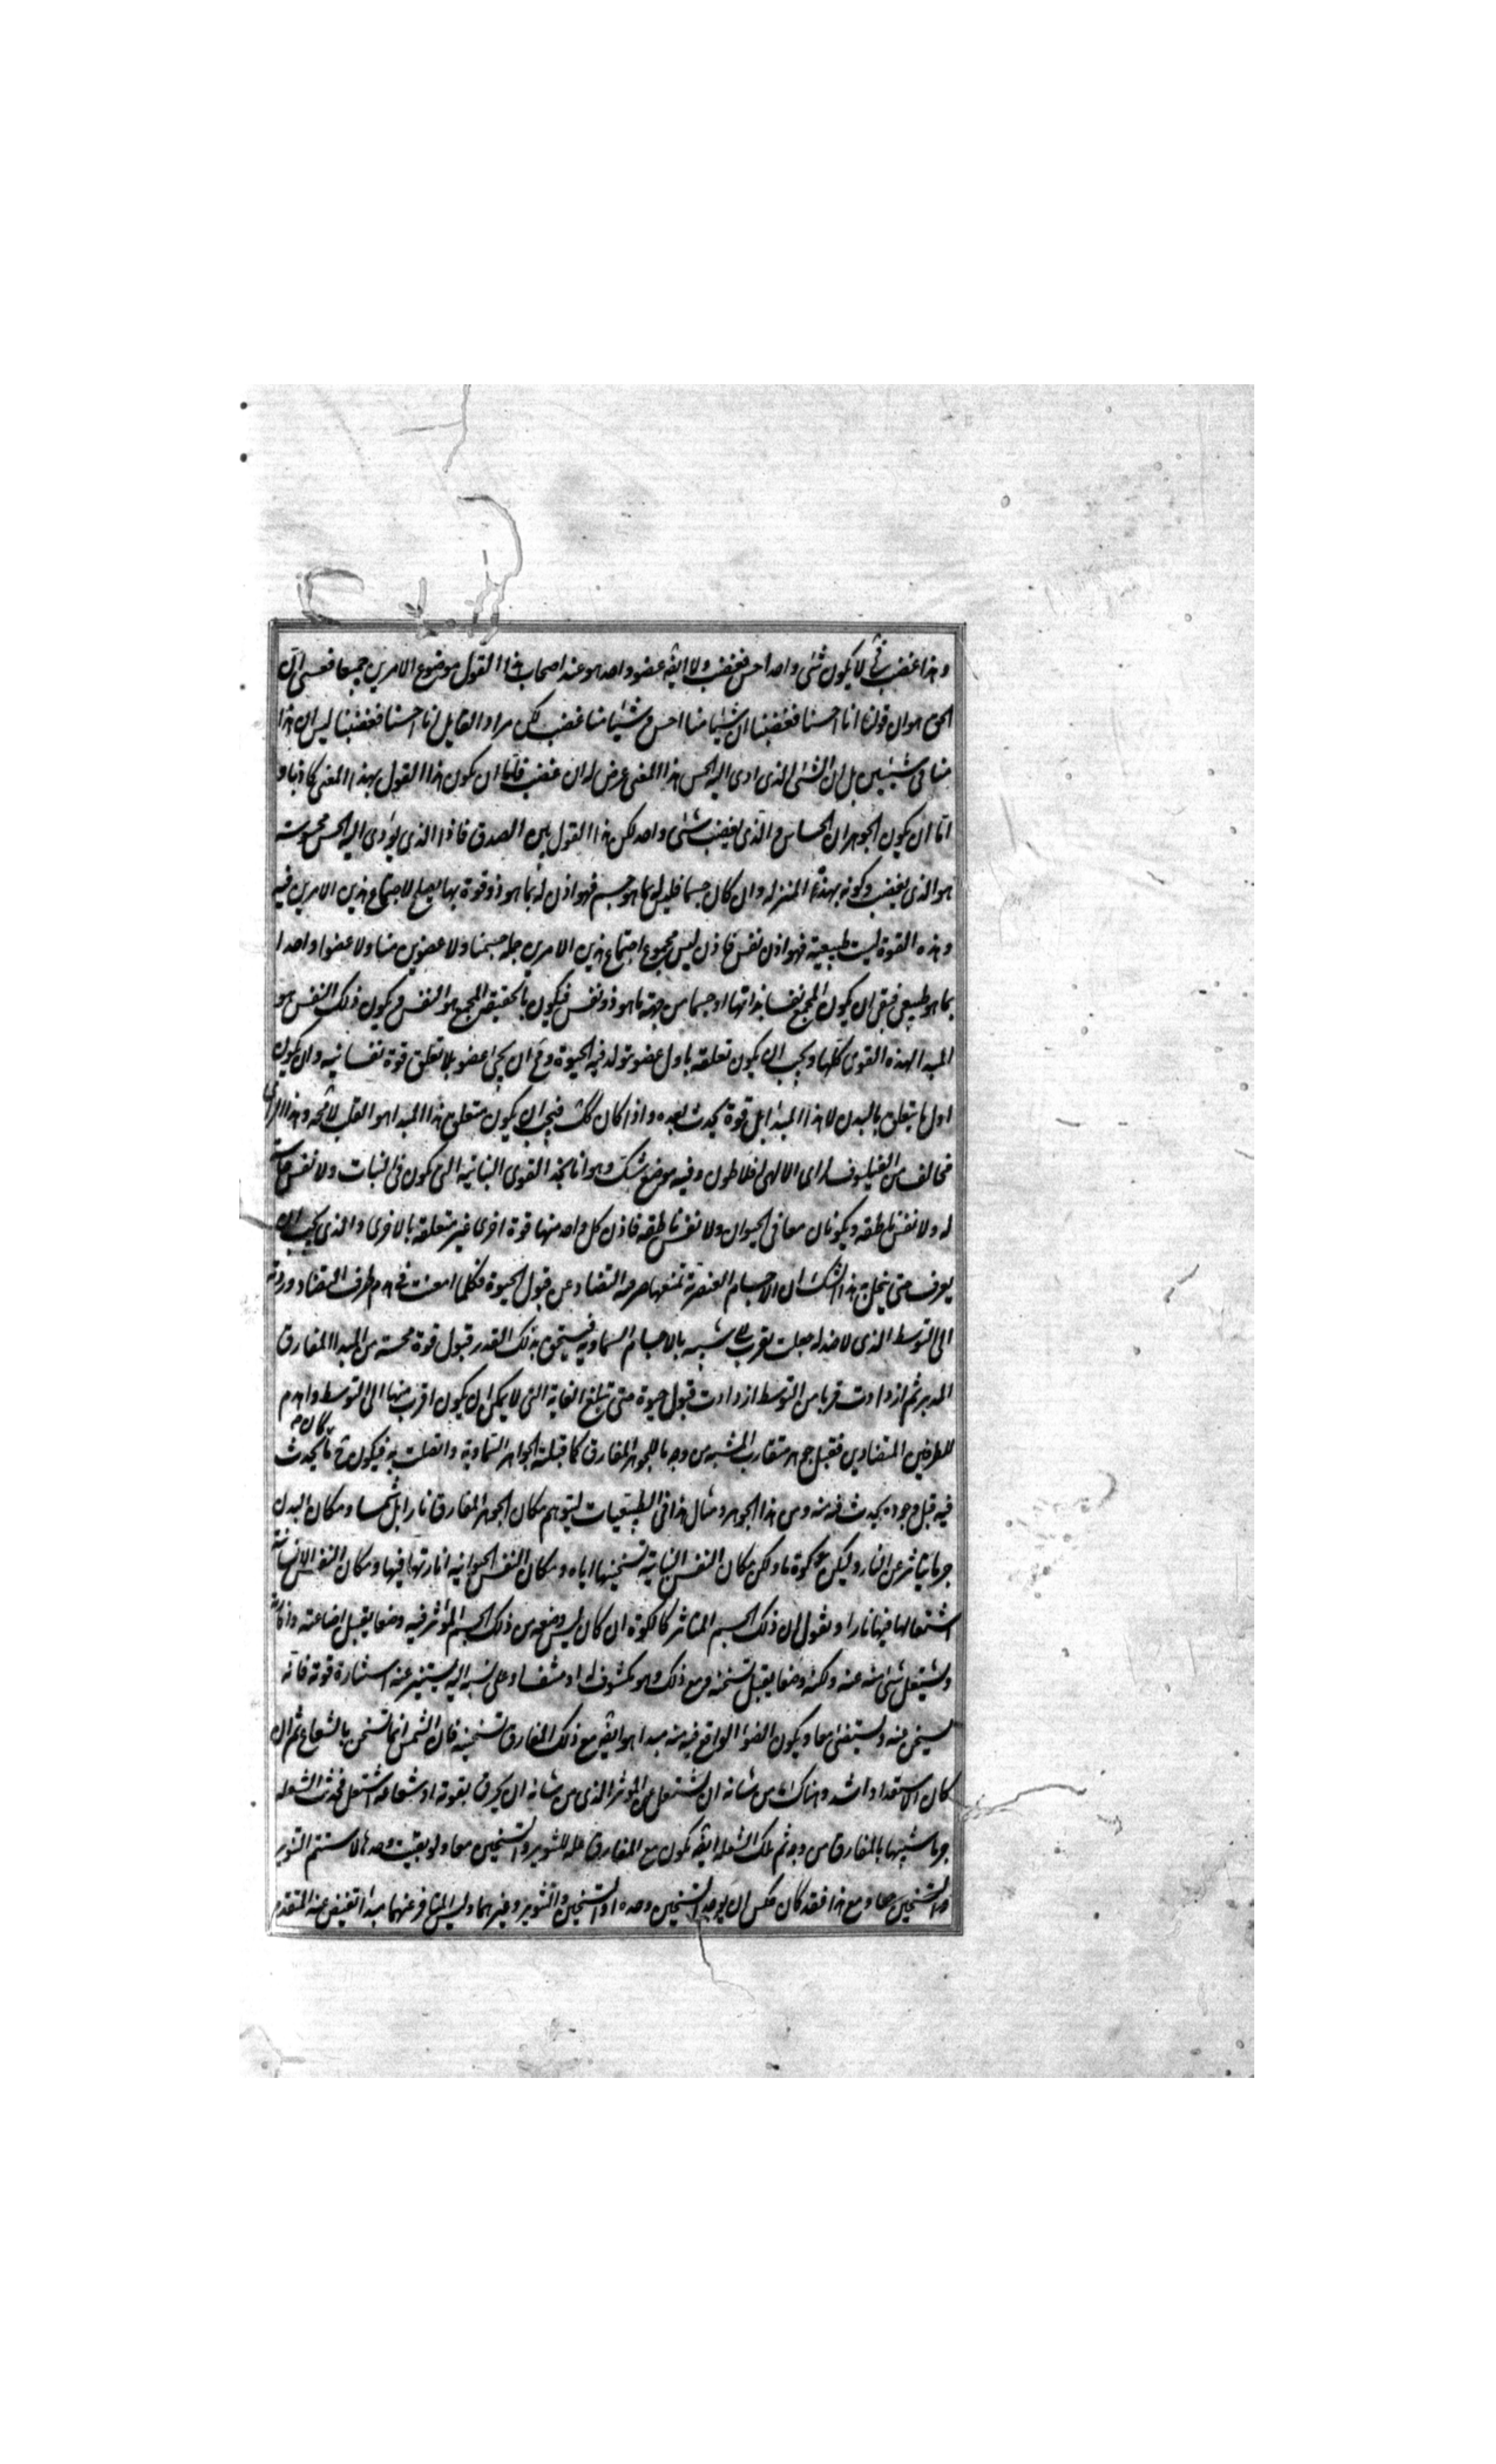 وهذا غضب فى لا يكون شئ واحد احس فغضب ولا ايضه عضو واحد هو عند اصحاب هذا القول موضوع الامرين جميعا فعسى ان
الحق هو ان قولنا انا احسسنا فغضبنا ان شيئا منا احس وشيئا منا غضب لكن مراد القايل انا احسسنا فغضبنا ليس ان هذا
منا فى شيئين بل ان الشئ الذى ادى اليه الحس هذا المعنى عرض له ان غضب فاما ان يكون هذا القول بهذا المعنى كاذبا و
اما ان يكون الجوهر ان الحساس والذى يغضب شئ واحد لكن هذا القول بين الصدق فاذا الذى يؤدى اليه الحس محسوسته
هو الذى يغضب وكونه بهذه المنزله وان كان جسما فليس له بما هو جسم فهو اذن له بما هو ذو قوة بها يصلح لاجتماع هذين الامرين فيه
وهذه القوة ليست طبيعية فهو اذن نفس فاذن ليس مجموع اجتماع هذين الامرين جملة جسمنا ولا عضوين منا ولا عضوا واحدا
بما هو طبيعى فبقى ان يكون المجمع نفسا بذاتها او جسما من جهة ما هو ذو نفس فيكون بالحقيقة المجمع هو النفس ويكون ذلك النفس هو
المبدا لهذه القوى كلها ويجب ان يكون تعلقه باول عضو تولد فيه الحيوة ومح ان يحيى عضو بلا تعلق قوة نفسانيه وان يكون
اول ما يتعلق بالبدن لا هذا المبدا بل قوة يحدث بعده واذا كان كك فيجب ان يكون متعلق هذا المبدا هو القلب لا محه وهذا الراى
مخالف من الفيلسوف لراى الالهى افلاطون وفيه موضع شك وهو انا نجد القوى النباتيه التى يكون فى النبات ولا نفس حساسة
له ولا نفس ناطقه ويكونان معا فى الحيوان ولا نفس ناطقه فاذن كل واحد منها قوة اخرى غير متعلقه بالاخرى والذى يجب ان
يعرف حتى ينحل به هذا الشك ان الاجسام العنصرية تمنعها صرفه التضاد عن قبول الحيوة فكلما امعنت فى هدم طرف التضاد ورده
الى التوسط الذى لا ضد له جعلت تقرب الى شبه بالاجسام السماويه فيستحق بذلك القدر قبول قوة محيية من المبدا المفارق
المدبر ثم ازدادت قربا من التوسط ازدادت قبول حيوة حتى تبلغ الغاية التى لا يمكن ان يكون اقرب منها الى التوسط واهدم
للطرفين المتضادين فقبل جوهر متقارب الشبه من وجه ما للجوهر المفارق كما قبلته الجواهر السماوية واتصلت به فيكون ح ما كان يحدث
فيه قبل وجوده يحدث فيه منه ومن هذا الجوهر ومثال هذا فى الطبيعيات ليتوهم مكان الجوهر المفارق نارا بل شمسا ومكان البدن
جرما يتاثر عن النار وليكن كوة ما وليكن مكان النفس النباتية تسخينها اياه ومكان النفس الحيوانيه انارتها فيها ومكان النفس الانسانية
اشتعالها فيها نارا ونقول ان ذلك الجسم المتاثر كالكوة ان كان ليس وضعه من ذلك الجسم المؤثر فيه وضعا يقبل اضاعته وانارته
ويشتعل شئ منه عنه ولكنه وضعا يقبل تسخنه ومع ذلك وهو مكشوف له او مشف او على نسبه اليه يستنير عنه استنارة قوته فانه
يسخن منه ويستضئ معا ويكون الضوء الواقع فيه منه مبدا هو ايضه مع ذلك المفارق تسخينه فان الشمس انما تسخن بالشعاع ثم ان
كان الاستعداد اشد وهناك ما من شانه ان يشتعل عن المؤثر الذى من شانه ان يحرق بقوته او شعاعه اشتعل فحدثت الشعله
جرما شبيها بالمفارق من وجه ثم تلك الشعله ايضه يكون مع المفارق عله للتنوير والتسخين معا ولو بقيت وحدها لاستتم التنوير
والتسخين معا ومع هذا فقد كان يمكن ان يوجد التسخين وحده او التسخين والتنوير وحدهما وليس المتاخر عنهما مبدا تفيض عنه المتقدم